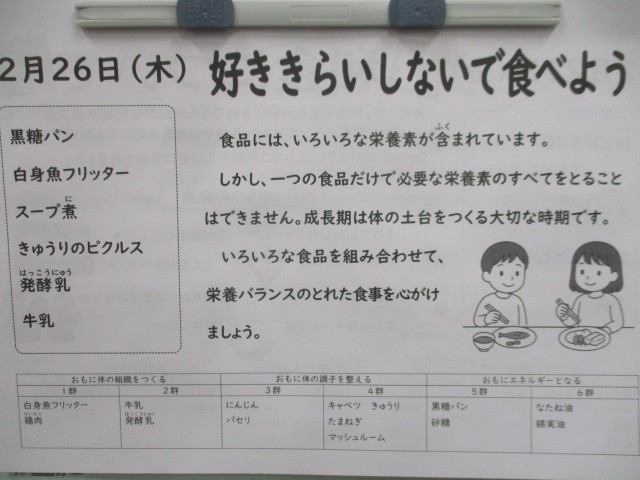 2月26日(木) 好ききらいしないで食べよう
黒糖パン
白身魚フリッター
スープ煮
に
きゅうりのピクルス
はっこうにゅう
発酵乳
牛乳
ふく
食品には、いろいろな栄養素が含まれています。
しかし、一つの食品だけで必要な栄養素のすべてをとること
はできません。成長期は体の土台をつくる大切な時期です。
いろいろな食品を組み合わせて、
栄養バランスのとれた食事を心がけ
ましょう。
おもに体の組織をつくる おもに体の調子を整える おもにエネルギーとなる
1群 2群 3群 4群 5群 6群
白身魚フリッター 牛乳 にんじん キャベツ きゅうり 黒糖パン なたね油
鶏肉 発酵乳 パセリ たまねぎ 砂糖 綿実油
マッシュルーム